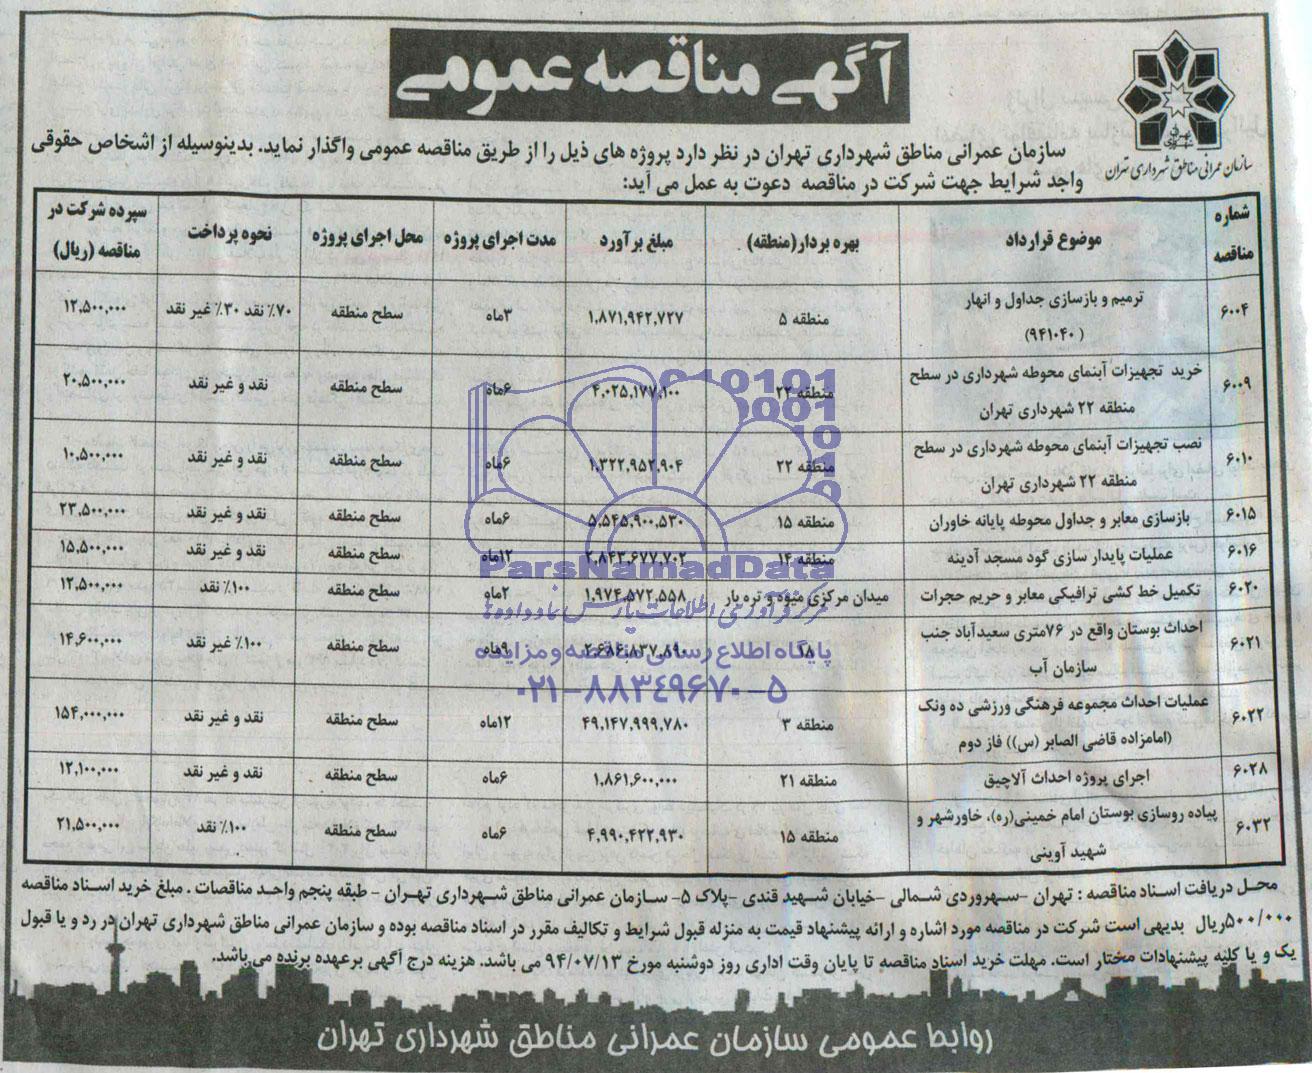 آگهی مناقصه عمومی
سازمان عمرانی مناطق شهرداری تهران
سازمان عمرانی مناطق شهرداری تهران در نظر دارد پروژه های ذیل را از طریق مناقصه عمومی واگذار نماید. بدینوسیله از اشخاص حقوقی
واجد شرایط جهت شرکت در مناقصه دعوت به عمل می آید:
شماره مناقصه | موضوع قرارداد | بهره بردار(منطقه) | مبلغ برآورد | مدت اجرای پروژه | محل اجرای پروژه | نحوه پرداخت | سپرده شرکت در مناقصه (ریال)
۶۰۰۴ | ترمیم و بازسازی جداول و انهار (۹۴۱۰۴۰) | منطقه ۵ | ۱،۸۷۱،۹۴۲،۷۲۷ | ۳ماه | سطح منطقه | ۷۰٪ نقد ۳۰٪ غیر نقد | ۱۲،۵۰۰،۰۰۰
۶۰۰۹ | خرید تجهیزات آبنمای محوطه شهرداری در سطح منطقه ۲۲ شهرداری تهران | منطقه ۲۲ | ۴،۰۲۵،۱۷۷،۱۰۰ | ۶ماه | سطح منطقه | نقد و غیر نقد | ۲۰،۵۰۰،۰۰۰
۶۰۱۰ | نصب تجهیزات آبنمای محوطه شهرداری در سطح منطقه ۲۲ شهرداری تهران | منطقه ۲۲ | ۱،۳۲۲،۹۵۲،۹۰۴ | ۶ماه | سطح منطقه | نقد و غیر نقد | ۱۰،۵۰۰،۰۰۰
۶۰۱۵ | بازسازی معابر و جداول محوطه پایانه خاوران | منطقه ۱۵ | ۵،۵۴۵،۹۰۰،۵۳۰ | ۶ماه | سطح منطقه | نقد و غیر نقد | ۲۳،۵۰۰،۰۰۰
۶۰۱۶ | عملیات پایدار سازی گود مسجد آدینه | منطقه ۱۴ | ۲،۸۴۳،۶۷۷،۷۰۲ | ۱۲ماه | سطح منطقه | نقد و غیر نقد | ۱۵،۵۰۰،۰۰۰
۶۰۲۰ | تکمیل خط کشی ترافیکی معابر و حریم حجرات | میدان مرکزی میوه و تره بار | ۱،۹۷۴،۵۷۲،۵۵۸ | ۲ماه | سطح منطقه | ۱۰۰٪ نقد | ۱۲،۵۰۰،۰۰۰
۶۰۲۱ | احداث بوستان واقع در ۷۶متری سعیدآباد جنب سازمان آب | ۱۸ | ۲،۶۸۶،۸۳۷،۸۹۰ | ۹ماه | سطح منطقه | ۱۰۰٪ غیر نقد | ۱۴،۶۰۰،۰۰۰
۶۰۲۲ | عملیات احداث مجموعه فرهنگی ورزشی ده ونک (امامزاده قاضی الصابر (س)) فاز دوم | منطقه ۳ | ۴۹،۱۴۷،۹۹۹،۷۸۰ | ۱۲ماه | سطح منطقه | نقد و غیر نقد | ۱۵۴،۰۰۰،۰۰۰
۶۰۲۸ | اجرای پروژه احداث آلاچیق | منطقه ۲۱ | ۱،۸۶۱،۶۰۰،۰۰۰ | ۶ماه | سطح منطقه | نقد و غیر نقد | ۱۲،۱۰۰،۰۰۰
۶۰۳۲ | پیاده روسازی بوستان امام خمینی(ره)، خاورشهر و شهید آوینی | منطقه ۱۵ | ۴،۹۹۰،۴۲۲،۹۳۰ | ۶ماه | سطح منطقه | ۱۰۰٪ نقد | ۲۱،۵۰۰،۰۰۰
ParsNamadData
مرکز فرآوری اطلاعات پارس نماد داده ها
پایگاه اطلاع رسانی مناقصه و مزایده
۰۲۱-۸۸۳۴۹۶۷۰-۵
محل دریافت اسناد مناقصه : تهران –سهروردی شمالی –خیابان شهید قندی –پلاک ۵- سازمان عمرانی مناطق شهرداری تهران – طبقه پنجم واحد مناقصات . مبلغ خرید اسناد مناقصه
۵۰۰/۰۰۰ریال بدیهی است شرکت در مناقصه مورد اشاره و ارائه پیشنهاد قیمت به منزله قبول شرایط و تکالیف مقرر در اسناد مناقصه بوده و سازمان عمرانی مناطق شهرداری تهران در رد و یا قبول
یک و یا کلیه پیشنهادات مختار است. مهلت خرید اسناد مناقصه تا پایان وقت اداری روز دوشنبه مورخ ۹۴/۰۷/۱۳ می باشد. هزینه درج آگهی برعهده برنده می باشد.
روابط عمومی سازمان عمرانی مناطق شهرداری تهران